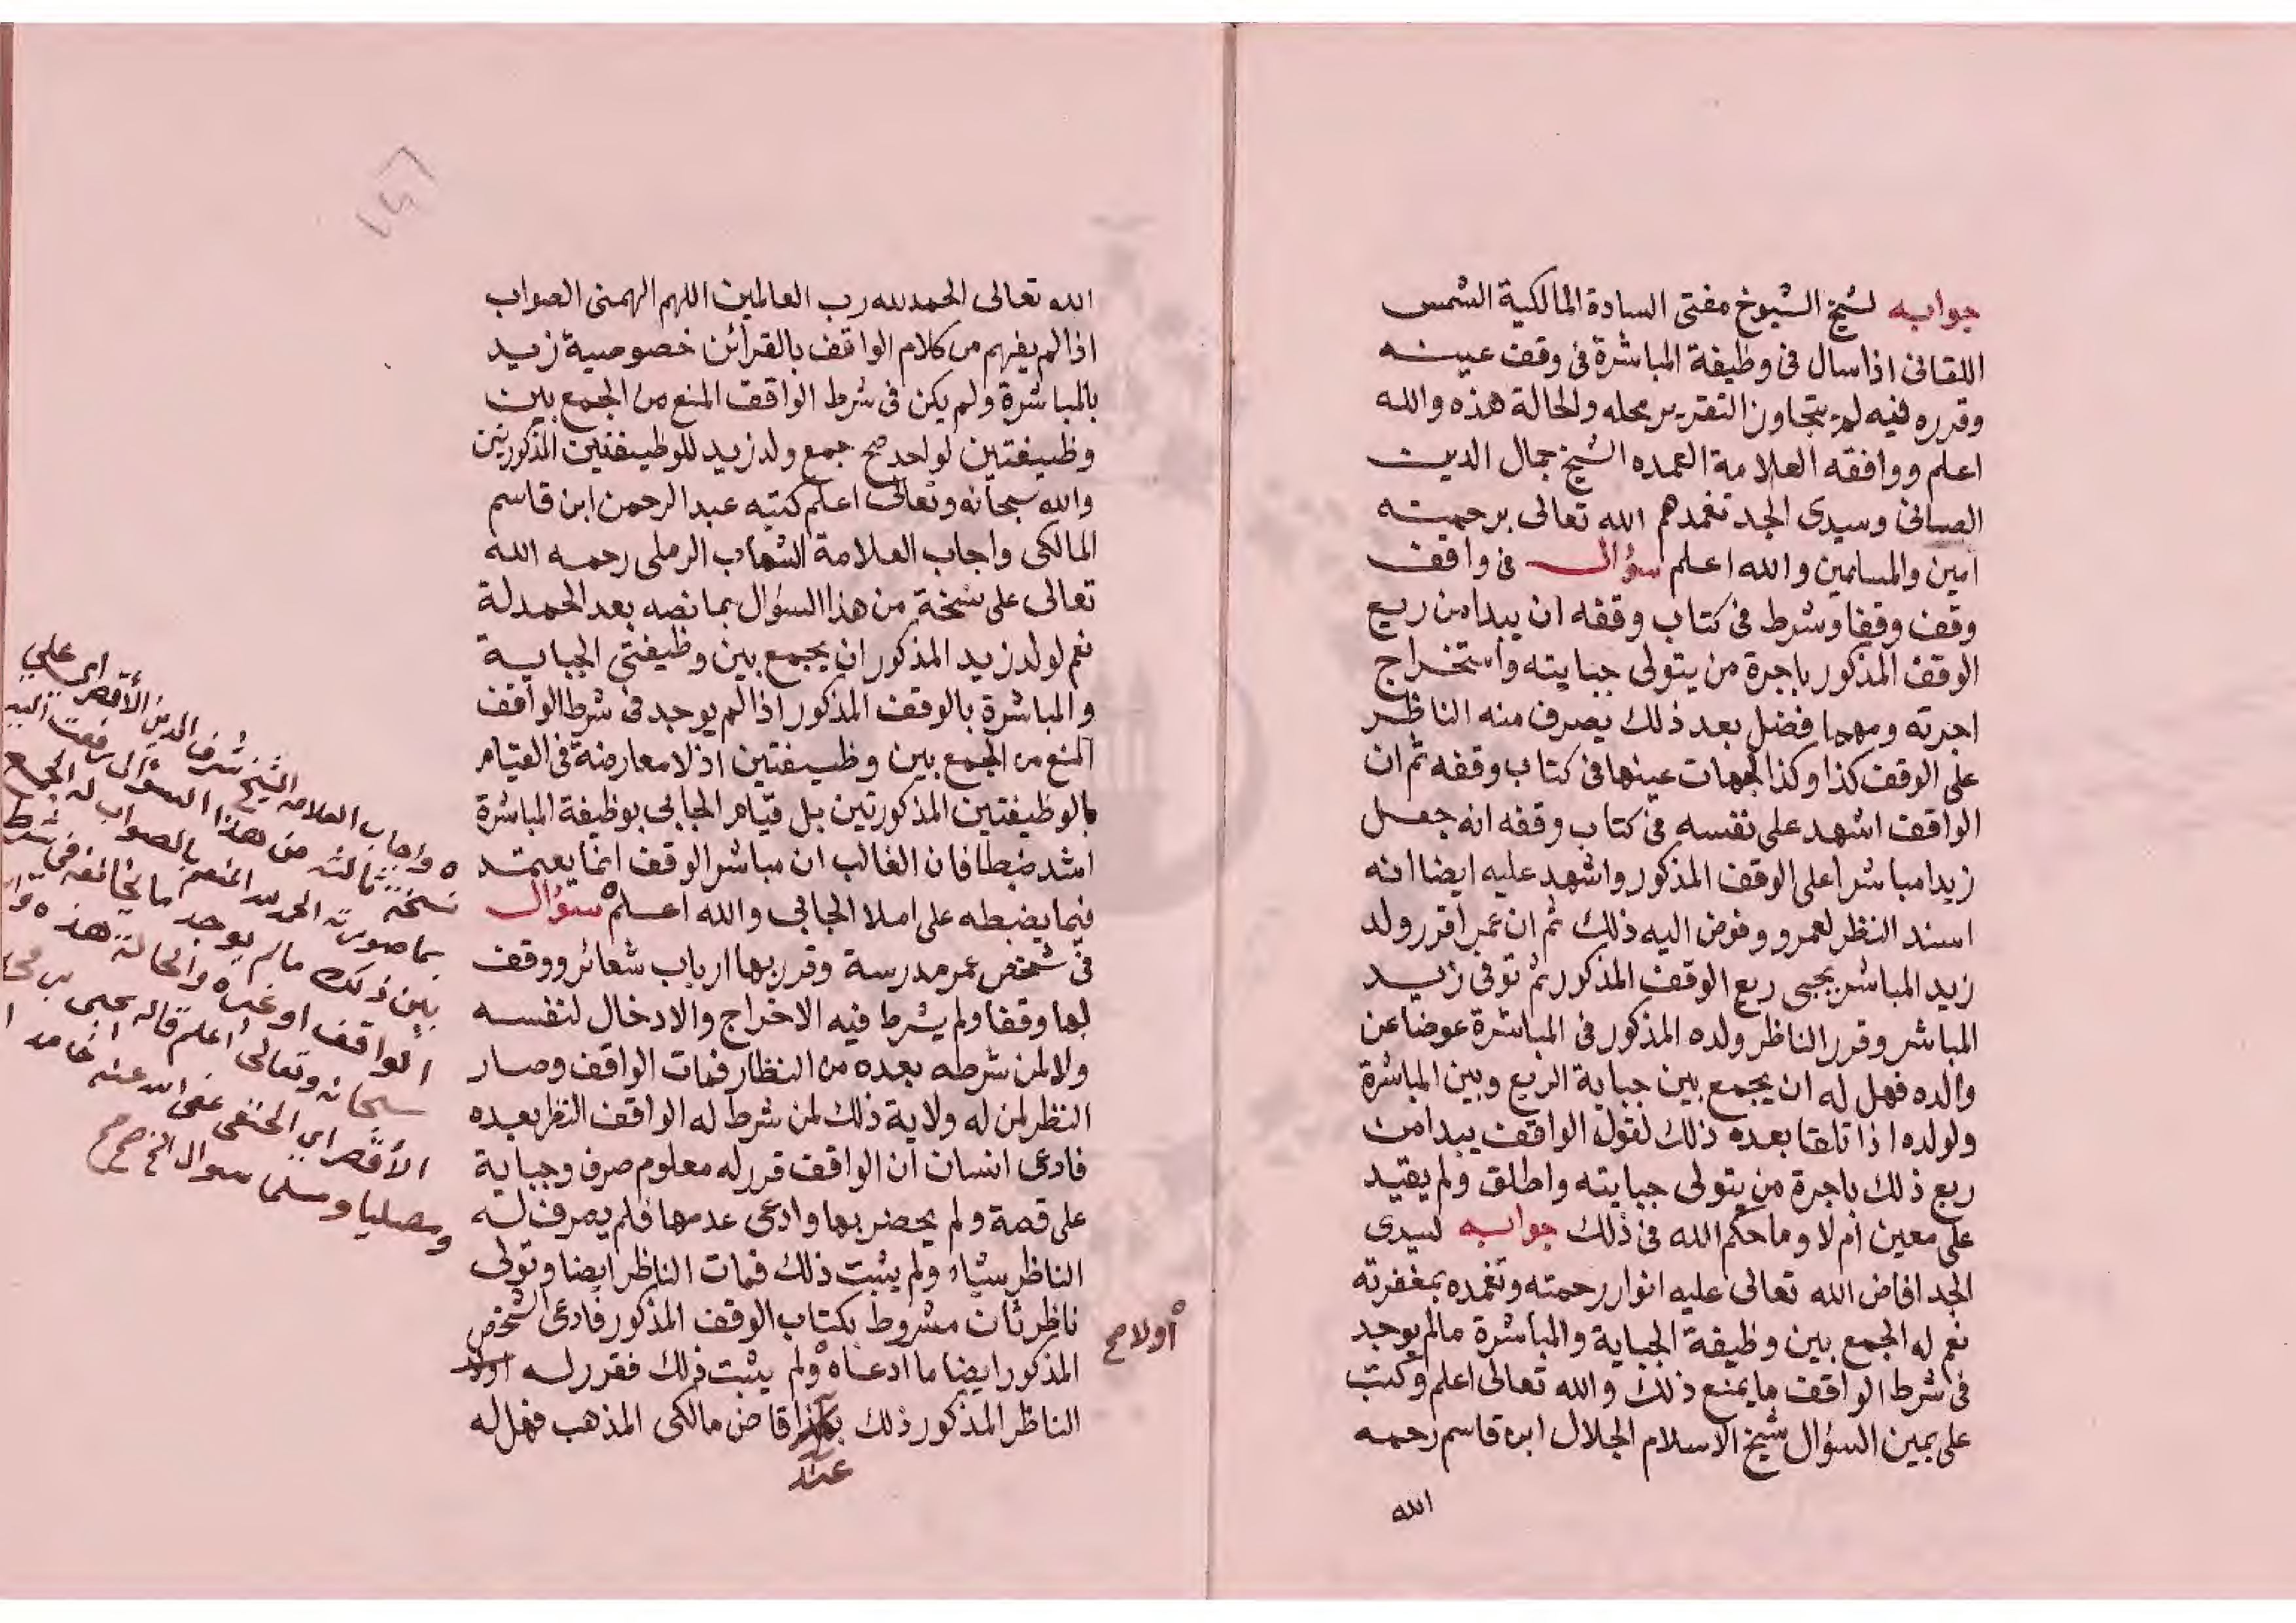 جوابه لشيخ الشيوخ مفتى السادة المالكية الشمس
اللقانى اذا سال فى وظيفة المباشرة فى وقف عينه
وقرره فيه لم يتجاوز التقرير محله والحالة هذه والله
اعلم ووافقه العلامة العمده الشيخ جمال الدين
الصانى وسيدى الجد تغمدهم الله تعالى برحمته
امين والمسلمين والله اعلم سؤال فى واقف
وقف وقفا وشرط فى كتاب وقفه ان يبدا من ريع
الوقف المذكور باجرة من يتولى جبايته واستخراج
اجرته ومهما فضل بعد ذلك يصرف منه الناظر
على الوقف كذا وكذا لجهات عينها فى كتاب وقفه ثم ان
الواقف اشهد على نفسه فى كتاب وقفه انه جعل
زيدا مباشرا على الوقف المذكور واشهد عليه ايضا انه
اسند النظر لعمرو وفوض اليه ذلك ثم ان عمرا قرر ولد
زيد المباشر يجبى ريع الوقف المذكور ثم توفى زيد
المباشر وقرر الناظر ولده المذكور فى المباشرة عوضا عن
والده فهل له ان يجمع بين جباية الريع وبين المباشرة
ولولده اذا تلقا بعده ذلك لقول الواقف يبدا من
ريع ذلك باجرة من يتولى جبايته واطلق ولم يقيد
على معين ام لا وما حكم الله فى ذلك جوابه لسيدى
الجد افاض الله تعالى عليه انوار رحمته وتغمده بمغفرته
نعم له الجمع بين وظيفة الجباية والمباشرة مالم يوجد
فى شرط الواقف ما يمنع ذلك والله تعالى اعلم وكتب
على يمين السؤال شيخ الاسلام الجلال ابن قاسم رحمه
الله
١٤٦
الله تعالى الحمد لله رب العالمين اللهم الهمنى الصواب
اذا لم يفهم من كلام الواقف بالقرائن خصوصية زيد
بالمباشرة ولم يكن فى شرط الواقف المنع من الجمع بين
وظيفتين لواحد صح جمع ولد زيد للوظيفتين المذكورتين
والله سبحانه وتعالى اعلم كتبه عبد الرحمن ابن قاسم
المالكى واجاب العلامة الشهاب الرملى رحمه الله
تعالى على نسخة من هذا السؤال بما نصه بعد الحمدلة
نعم لولد زيد المذكور ان يجمع بين وظيفتى الجباية
والمباشرة بالوقف المذكور اذا لم يوجد فى شرط الواقف
المنع من الجمع بين وظيفتين اذ لا معارضة فى القيام
بالوظيفتين المذكورتين بل قيام الجابى بوظيفة المباشرة
اشد ضبطا فان الغالب ان مباشر الوقف انما يعتمد
فيما يضبطه على املا الجابى والله اعلم سؤال
فى شخص عمر مدرسة وقرر بها ارباب شعائر ووقف
لها وقفا ولم يشرط فيه الاخراج والادخال لنفسه
ولا لمن شرطه بعده من النظار فمات الواقف وصار
النظر لمن له ولاية ذلك لمن شرط له الواقف النظر بعده
فادعى انسان ان الواقف قرر له معلوم صرف وجباية
على قصة ولم يحضر بها وادعى عدمها فلم يصرف له
الناظر شياء ولم يثبت ذلك فمات الناظر ايضا وتولى
ناظر ثان مشروط بكتاب الوقف المذكور فادعى الشخص
المذكور ايضا ما ادعاه ولم يثبت ذلك فقرر له اولا
الناظر المذكور ذلك قاض مالكى المذهب فهل له
عند
أولا صح
واجاب العلامه الشيخ شرف الدين الأقصراى على
نسخة ثالثه من هذا السؤال رفعت اليه
بما صورته الحمد لله المنعم بالصواب له الجمع
بين ذلك مالم يوجد ما يخالفه فى شرط
الواقف او غيره والحالة هذه
سبحانه وتعالى أعلم قاله يحيى
الأقصراي الحنفى عفى الله عنه حامدا
ومصليا ومسلما سوال الخ صح صح